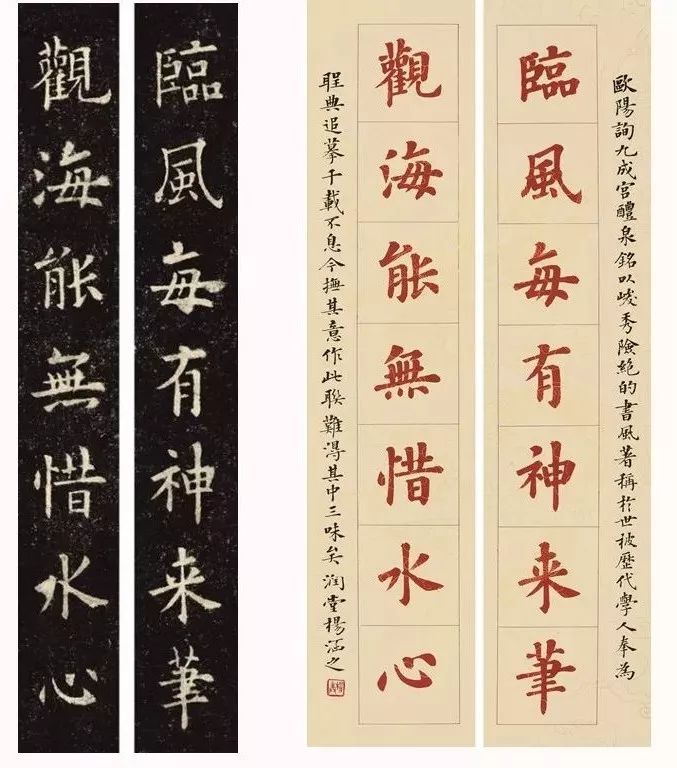 歐陽詢九成宮醴泉銘以峻秀險絶的書風著稱於世被歷代學人奉為
臨風每有神来筆
觀海能無惜水心
典追摹千載不息今撫其意作此聯難得其中三味矣 润堂楊涵之
臨風每有神来筆
觀海能無惜水心